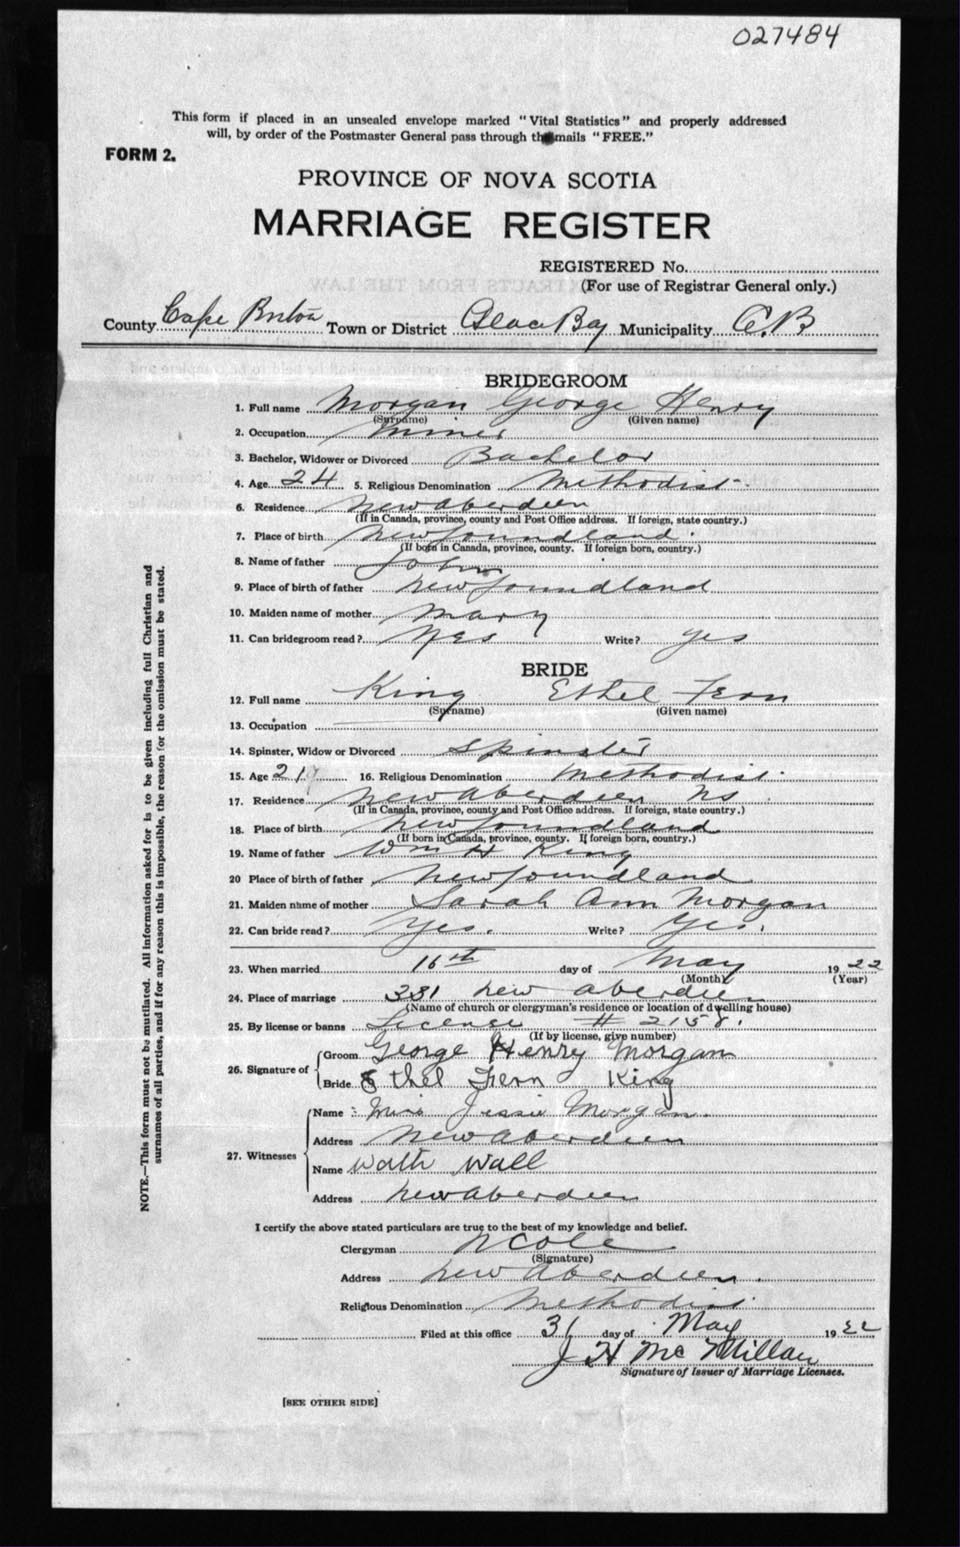 027484
This form if placed in an unsealed envelope marked "Vital Statistics" and properly addressed
will, by order of the Postmaster General pass through the mails "FREE."
FORM 2.
PROVINCE OF NOVA SCOTIA
MARRIAGE REGISTER
REGISTERED No.
(For use of Registrar General only.)
County Cape Breton Town or District Glace Bay Municipality C.B
BRIDEGROOM
1. Full name Morgan George Henry
(Surname) (Given name)
2. Occupation Miner
3. Bachelor, Widower or Divorced Bachelor
4. Age 24 5. Religious Denomination Methodist
6. Residence New Aberdeen
(If in Canada, province, county and Post Office address. If foreign, state country.)
7. Place of birth Newfoundland
(If born in Canada, province, county. If foreign born, country.)
8. Name of father John
9. Place of birth of father Newfoundland
10. Maiden name of mother Mary
11. Can bridegroom read? Yes Write? yes
BRIDE
12. Full name King Ethel Fern
(Surname) (Given name)
13. Occupation
14. Spinster, Widow or Divorced Spinster
15. Age 21 16. Religious Denomination Methodist
17. Residence New Aberdeen NS
(If in Canada, province, county and Post Office address. If foreign, state country.)
18. Place of birth Newfoundland
(If born in Canada, province, county. If foreign born, country.)
19. Name of father Wm H King
20 Place of birth of father Newfoundland
21. Maiden name of mother Sarah Ann Morgan
22. Can bride read? Yes. Write? Yes.
23. When married 16th day of May 1922
(Month) (Year)
24. Place of marriage 331 New Aberdeen
(Name of church or clergyman's residence or location of dwelling house)
25. By license or banns License # 2158.
(If by license, give number)
26. Signature of
Groom George Henry Morgan
Bride Ethel Fern King
27. Witnesses
Name Miss Jessie Morgan
Address New Aberdeen
Name Wall
Address New Aberdeen
I certify the above stated particulars are true to the best of my knowledge and belief.
Clergyman Cole
(Signature)
Address New Aberdeen.
Religious Denomination Methodist
Filed at this office 31 day of May 1922
J H McMillan
Signature of Issuer of Marriage Licenses.
[SEE OTHER SIDE]
NOTE.—This form must not be mutilated. All information asked for is to be given including full Christian and
surnames of all parties, and if for any reason this is impossible, the reason for the omission must be stated.